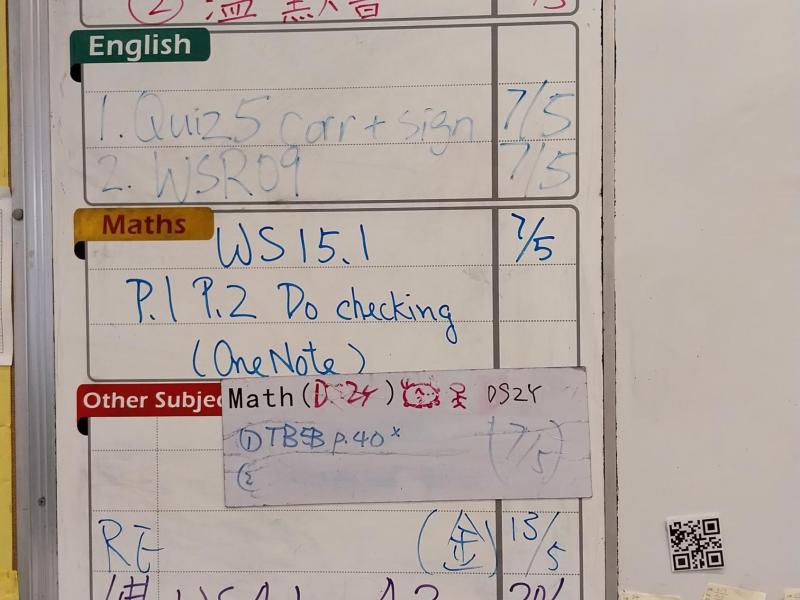 ② 溫 默書 13
English
1. Quiz 5 corr + sign 7/5
2. WSR09 7/5
Maths
WS 15.1 7/5
P.1 P.2 Do checking
(OneNote)
Other Subjec
Math (D 24) DS2Y
① TB5B p.40 (7/5)
②
RE (金) 13/5